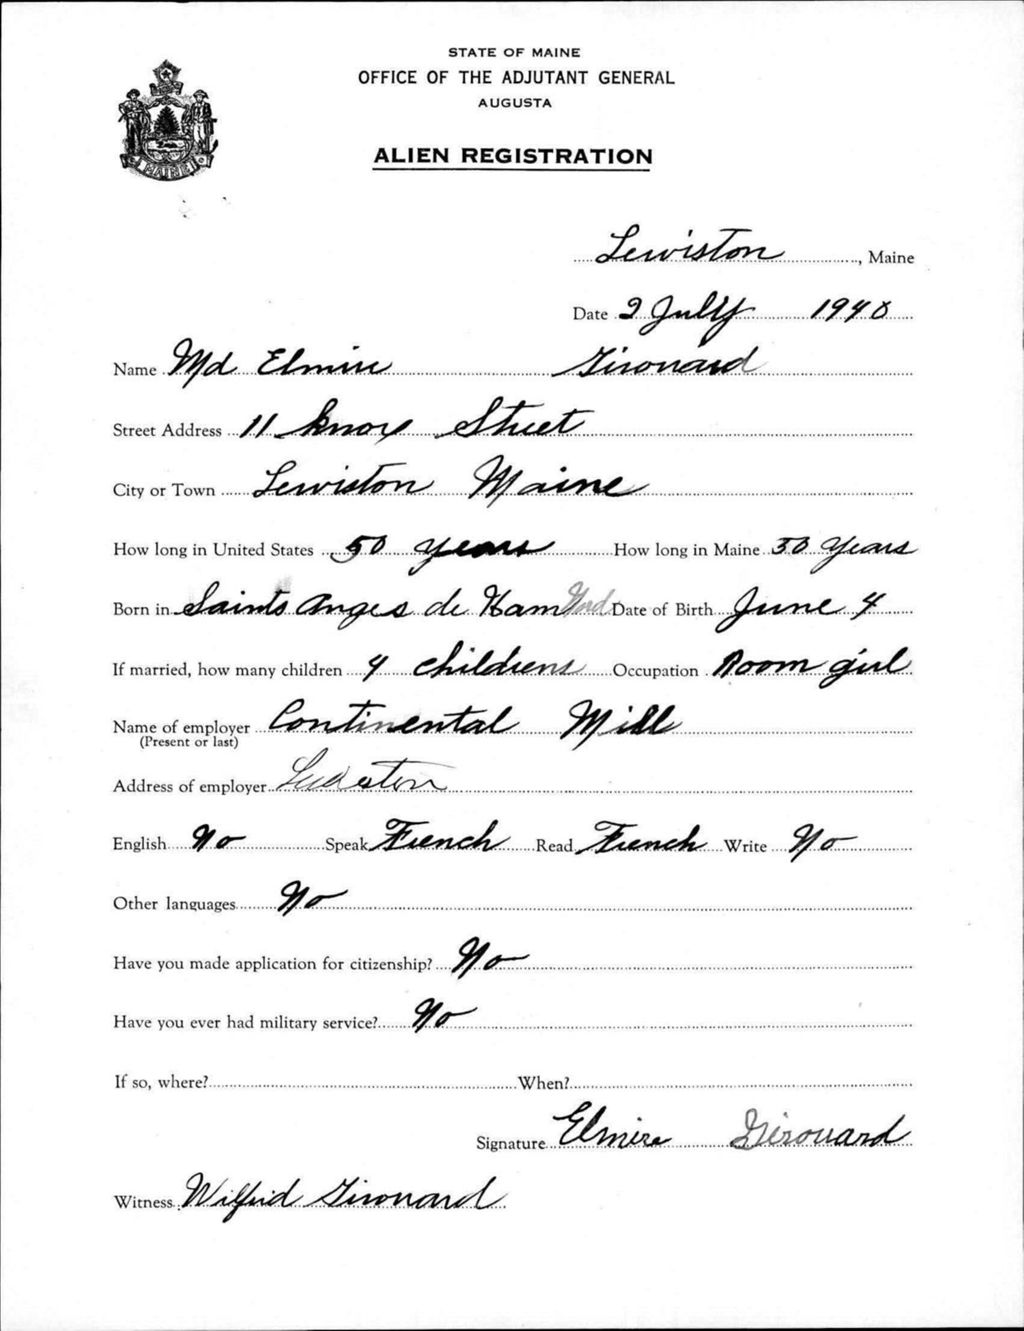 STATE OF MAINE
OFFICE OF THE ADJUTANT GENERAL
AUGUSTA
ALIEN REGISTRATION
MAINE
Lewiston, Maine
Date 2 July 1940
Name Md Elmire Girouard
Street Address 11 Knox Street
City or Town Lewiston Maine
How long in United States 50 years How long in Maine 50 years
Born in Saints Anges de Ham Nord Date of Birth June 4
If married, how many children 4 childrens Occupation Room girl
Name of employer Continental Mill
(Present or last)
Address of employer Lewiston
English No Speak French Read French Write No
Other languages No
Have you made application for citizenship? No
Have you ever had military service? No
If so, where? When?
Signature Elmire Girouard
Witness Wilfrid Girouard